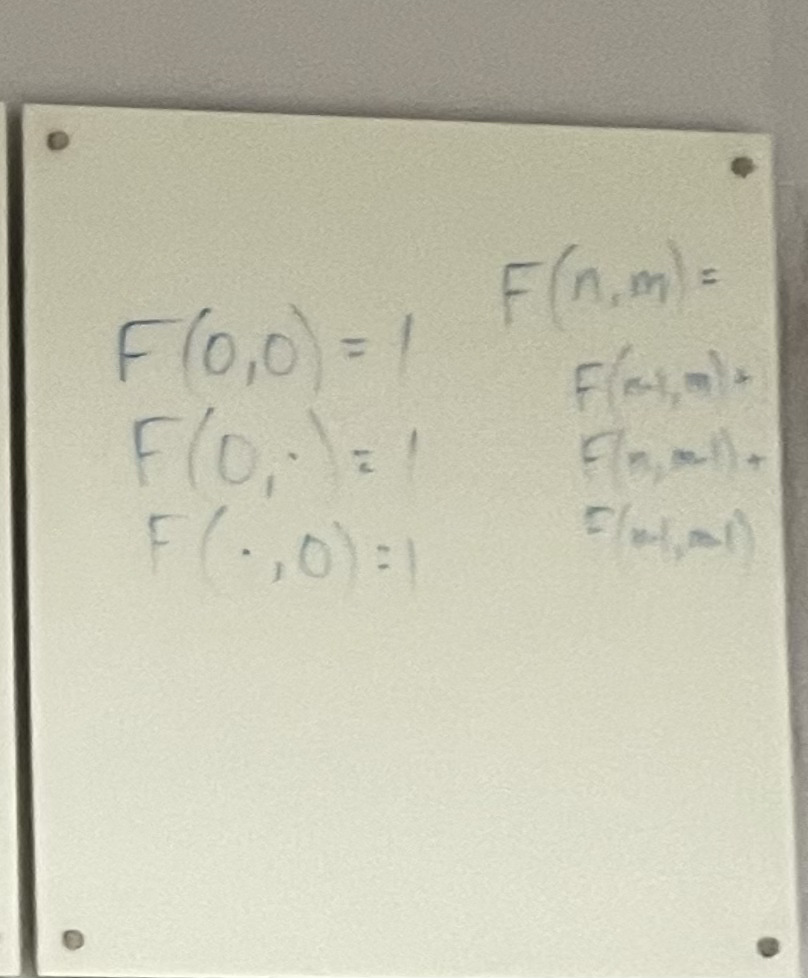 F(0,0) = 1
F(0,·) = 1
F(·,0) = 1
F(n,m) =
F(n-1,m) +
F(n,m-1) +
F(n-1,m-1)